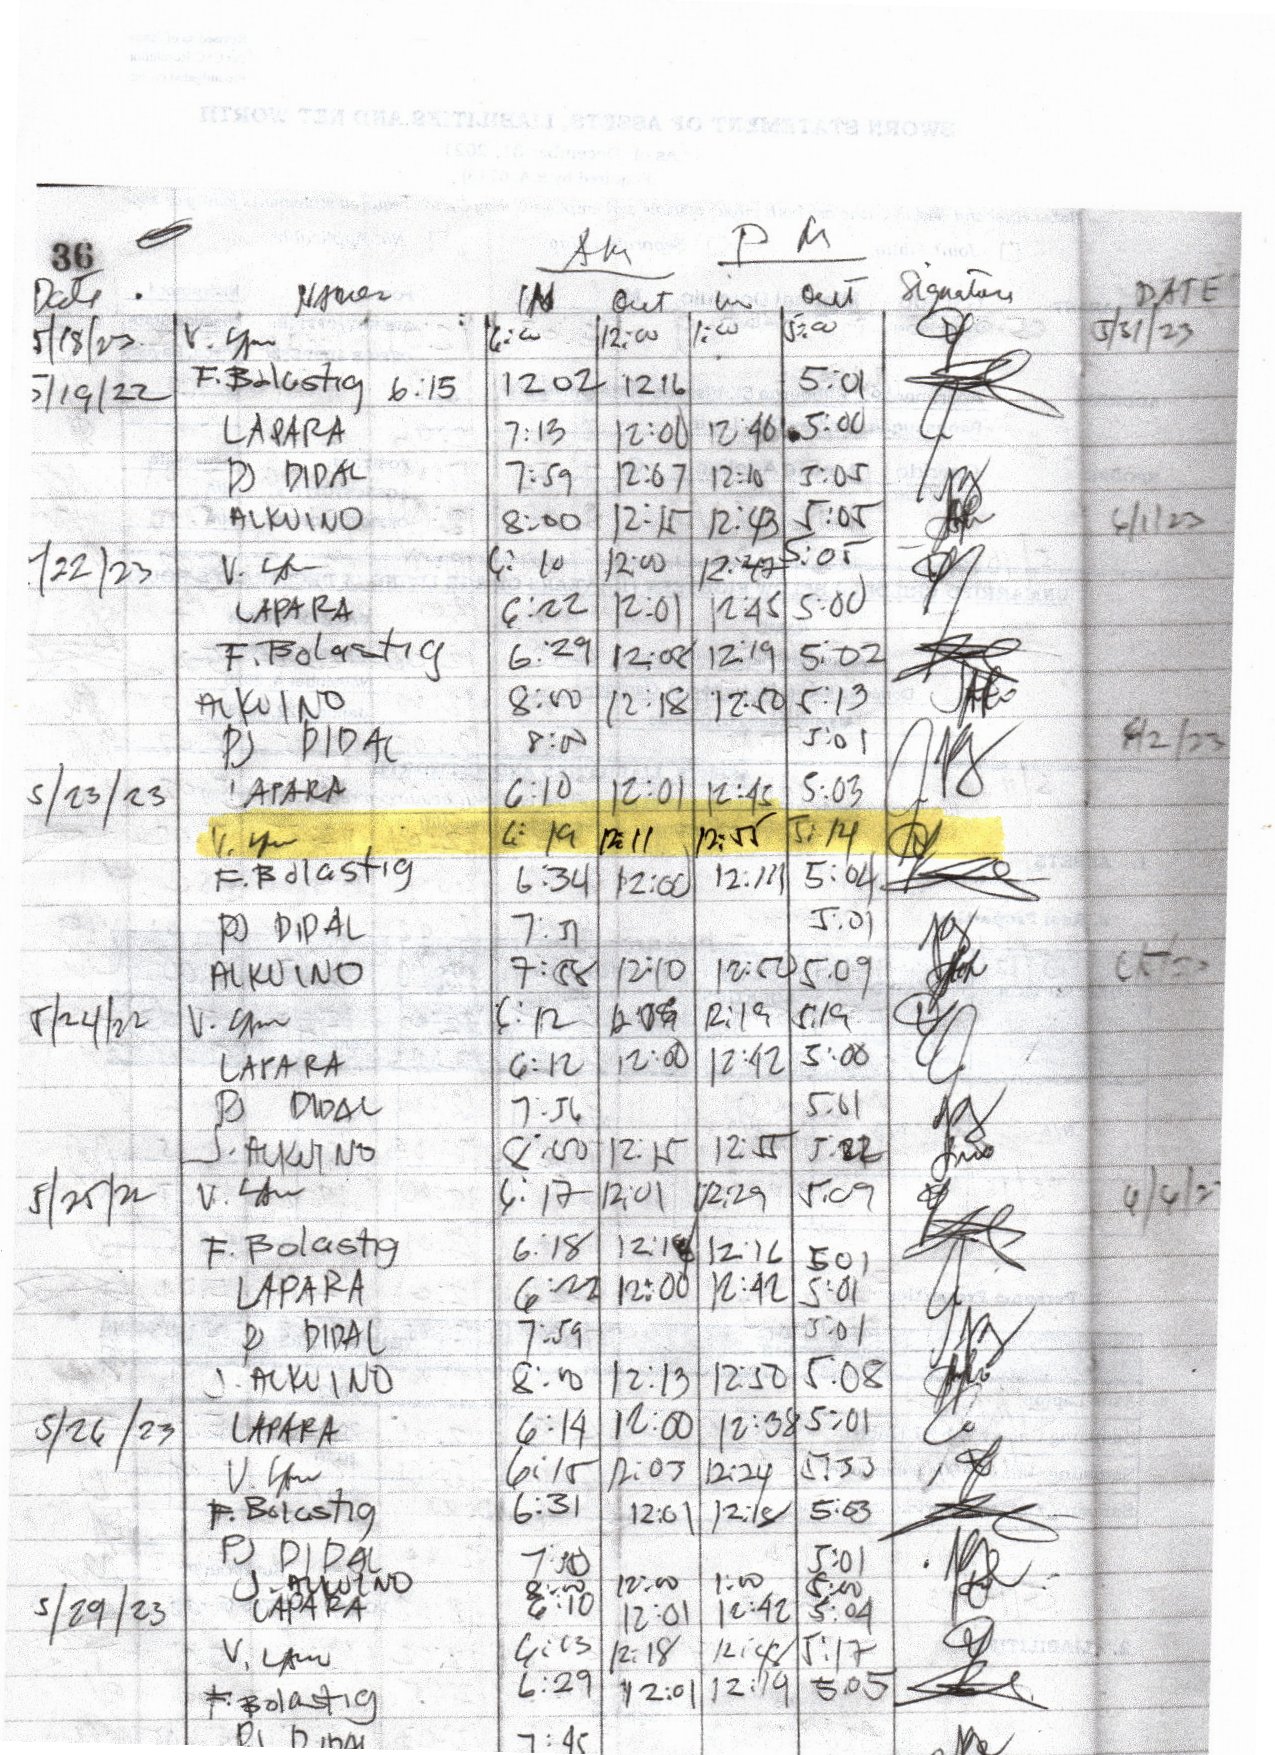 36
AM P M
Date Names IN out in out Signature DATE
5/18/23 V. 6:00 12:00 1:00 5:00 5/31/23
5/19/22 F. Bolastig 6:15 1202 1216 5:01
LAPARA 7:13 12:00 12:46 5:00
PJ DIDAL 7:59 12:07 12:10 5:05
ALKUINO 8:00 12:15 12:43 5:05 6/1/23
/22/23 V. 6:10 12:00 5:05
LAPARA 6:22 12:01 12:45 5:00
F. Bolastig 6:29 12:08 12:19 5:02
ALKUINO 8:00 12:18 12:50 5:13
PJ DIDAL 8:00 5:01 6/2/23
5/23/23 LAPARA 6:10 12:01 12:45 5:03
V. 6:19 12:11 12:55 5:14
F. Bolastig 6:34 12:00 12:11 5:04
PJ DIDAL 7:51 5:01
ALKUINO 7:58 12:10 12:50 5:09
5/24/22 V. 6:12 12:19 5:19
LAPARA 6:12 12:00 12:42 5:00
PJ DIDAL 7:56 5:01
J. ALKUINO 8:00 12:15 12:55 5:22
5/25/22 V. 6:17 12:01 12:29 5:09
F. Bolastig 6:18 12:16 5:01
LAPARA 6:22 12:00 12:42 5:01
PJ DIDAL 7:59 5:01
J. ALKUINO 8:00 12:13 12:50 5:08
5/26/23 LAPARA 6:14 12:00 12:38 5:01
V. 6:15 12:03 12:24 5:33
F. Bolastig 6:31 12:01 12:15 5:03
PJ DIDAL 5:01
J. ALKUINO 8:00 12:00 1:00 5:00
5/29/23 LAPARA 6:10 12:01 12:42 5:04
V. 6:13 12:18 12:48 5:17
F. Bolastig 6:29 12:01 12:19 5:05
PJ DIDAL 7:45